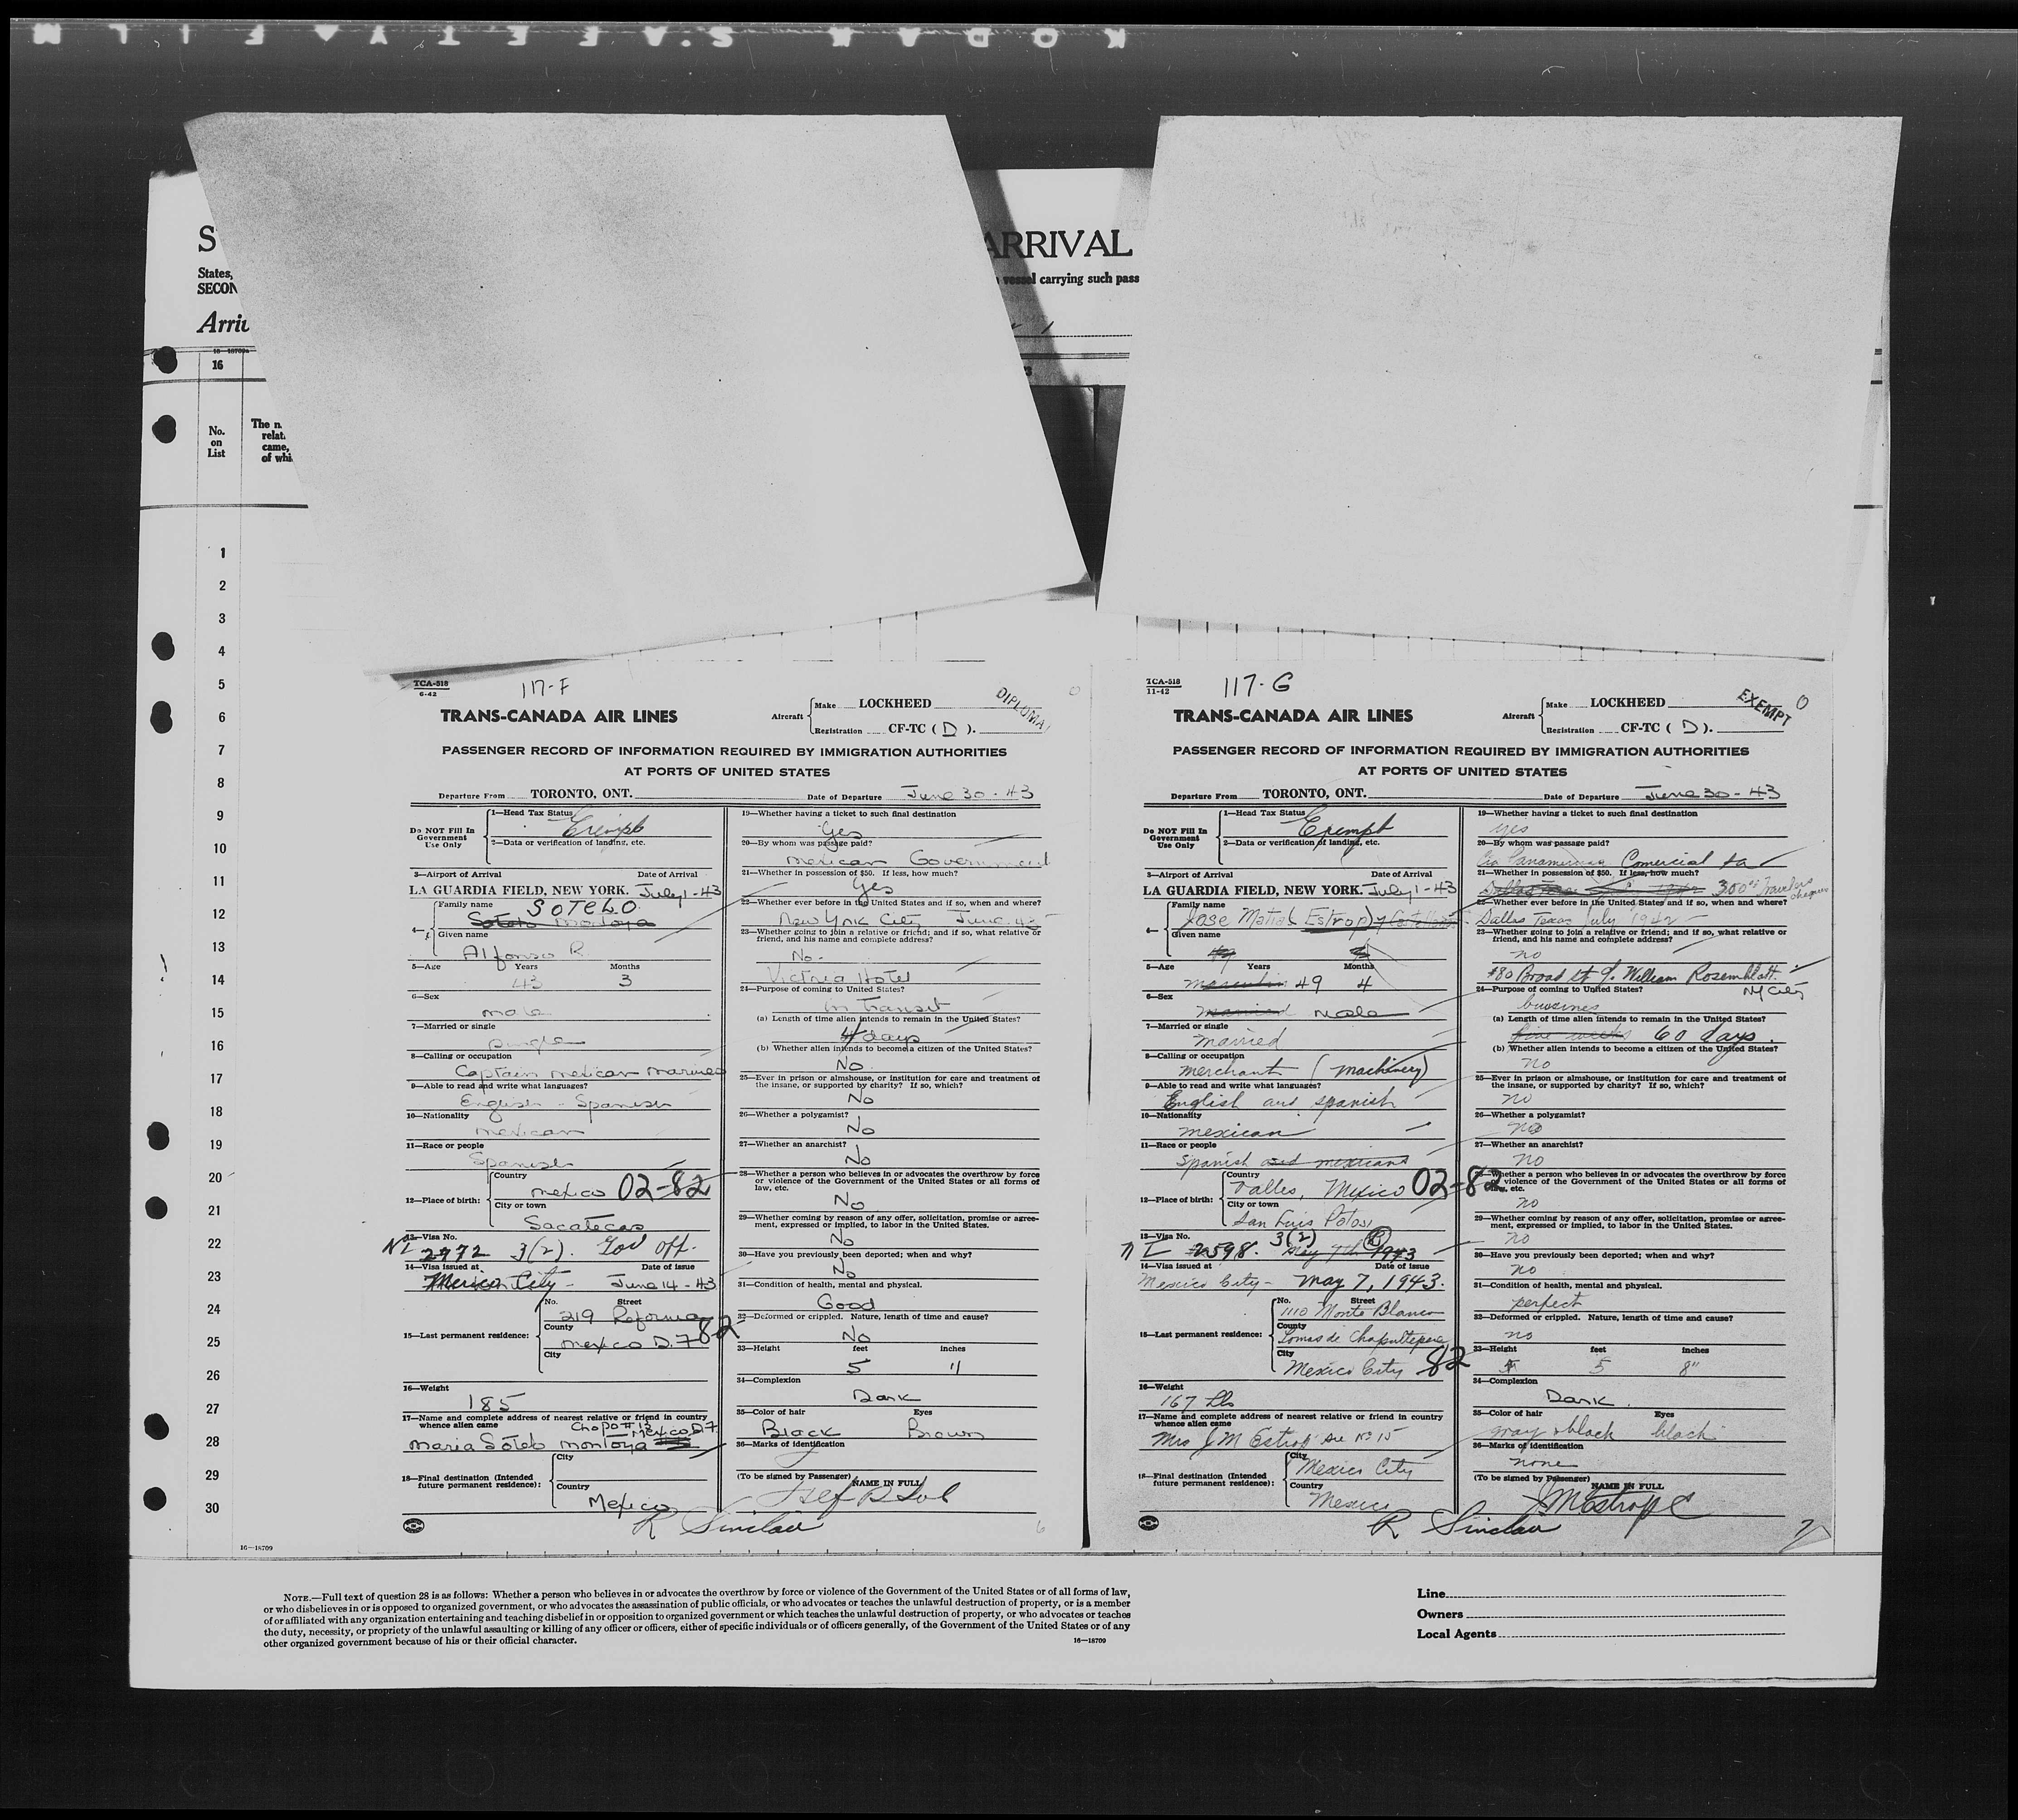 S
ARRIVAL
States,
vessel carrying such pass
SECON
Arri
16—18709a
16
No.
on
List
The n
relat
came,
of whi
1
2
3
4
5
6
7
8
9
10
11
12
13
14
15
16
17
18
19
20
21
22
23
24
25
26
27
28
29
30
16—18709
TCA-518
6-42
117-F
DIPLOMAT
TRANS-CANADA AIR LINES
Aircraft
Make LOCKHEED
Registration CF-TC ( D ).
PASSENGER RECORD OF INFORMATION REQUIRED BY IMMIGRATION AUTHORITIES
AT PORTS OF UNITED STATES
Departure From TORONTO, ONT. Date of Departure June 30 - 43
Do NOT Fill In
Government
Use Only
1—Head Tax Status
Exempt
2—Data or verification of landing, etc.
3—Airport of Arrival Date of Arrival
LA GUARDIA FIELD, NEW YORK. July 1-43
4— Family name SOTELO
Sotelo Montoya
Given name
Alfonso R.
5—Age Years Months
43 3
6—Sex
male
7—Married or single
single
8—Calling or occupation
Captain mexican marines
9—Able to read and write what languages?
English - Spanish
10—Nationality
mexican
11—Race or people
Spanish
12—Place of birth:
Country
mexico 02-82
City or town
Sacatecas
13—Visa No.
NI 2972 3(2). Gov off.
14—Visa issued at Date of issue
Mexico City - June 14-43
15—Last permanent residence:
No. Street
219 Reforma
County
mexico D.F 82
City
16—Weight
185
17—Name and complete address of nearest relative or friend in country
whence alien came
Chopo # 13 Mexico D.F
maria Sotelo montoya
18—Final destination (Intended
future permanent residence):
City
Country
Mexico
19—Whether having a ticket to such final destination
Yes
20—By whom was passage paid?
mexican Government
21—Whether in possession of $50. If less, how much?
Yes
22—Whether ever before in the United States and if so, when and where?
New York City June 43
23—Whether going to join a relative or friend; and if so, what relative or
friend, and his name and complete address?
No.
Victoria Hotel
24—Purpose of coming to United States?
In Transit
(a) Length of time alien intends to remain in the United States?
4 days
(b) Whether alien intends to become a citizen of the United States?
No
25—Ever in prison or almshouse, or institution for care and treatment of
the insane, or supported by charity? If so, which?
No
26—Whether a polygamist?
No
27—Whether an anarchist?
No
28—Whether a person who believes in or advocates the overthrow by force
or violence of the Government of the United States or all forms of
law, etc.
No
29—Whether coming by reason of any offer, solicitation, promise or agree-
ment, expressed or implied, to labor in the United States.
No
30—Have you previously been deported; when and why?
No
31—Condition of health, mental and physical.
Good
32—Deformed or crippled. Nature, length of time and cause?
No
33—Height feet inches
5 11
34—Complexion
Dark
35—Color of hair Eyes
Black Brown
36—Marks of identification
(To be signed by Passenger)
NAME IN FULL
R Sinclair
6
TCA-518
11-42
117-G
EXEMPT
0
TRANS-CANADA AIR LINES
Aircraft
Make LOCKHEED
Registration CF-TC ( D ).
PASSENGER RECORD OF INFORMATION REQUIRED BY IMMIGRATION AUTHORITIES
AT PORTS OF UNITED STATES
Departure From TORONTO, ONT. Date of Departure June 30 - 43
Do NOT Fill In
Government
Use Only
1—Head Tax Status
Exempt
2—Data or verification of landing, etc.
3—Airport of Arrival Date of Arrival
LA GUARDIA FIELD, NEW YORK. July 1-43
4— Family name
Jose Mata Estrop y
Given name
5—Age Years Months
49 4
6—Sex
married male
7—Married or single
married
8—Calling or occupation
merchant (machinery)
9—Able to read and write what languages?
English and spanish
10—Nationality
mexican
11—Race or people
Spanish and mexican
12—Place of birth:
Country
Valles, Mexico 02-82
City or town
San Luis Potosi
13—Visa No. 3(2)
NI 2598. May 7th 1943
14—Visa issued at Date of issue
Mexico City - May 7, 1943.
15—Last permanent residence:
No. Street
1110 Monte Blanco
County
Lomas de Chapultepec
City
Mexico City 82
16—Weight
167 Lbs
17—Name and complete address of nearest relative or friend in country
whence alien came
Mrs J M Estrop Ave No 15
18—Final destination (Intended
future permanent residence):
City
Mexico City
Country
Mexico
19—Whether having a ticket to such final destination
yes
20—By whom was passage paid?
Cia Panamericana Comercial sa
21—Whether in possession of $50. If less, how much?
300.00 Travelers cheques
22—Whether ever before in the United States and if so, when and where?
Dallas Texas July 1942
23—Whether going to join a relative or friend; and if so, what relative or
friend, and his name and complete address?
no
#80 Broad St William Rosenblatt.
24—Purpose of coming to United States? NY City
bussines
(a) Length of time alien intends to remain in the United States?
five weeks 60 days.
(b) Whether alien intends to become a citizen of the United States?
no
25—Ever in prison or almshouse, or institution for care and treatment of
the insane, or supported by charity? If so, which?
no
26—Whether a polygamist?
no
27—Whether an anarchist?
no
28—Whether a person who believes in or advocates the overthrow by force
or violence of the Government of the United States or all forms of
law, etc.
no
29—Whether coming by reason of any offer, solicitation, promise or agree-
ment, expressed or implied, to labor in the United States.
no
30—Have you previously been deported; when and why?
no
31—Condition of health, mental and physical.
perfect
32—Deformed or crippled. Nature, length of time and cause?
no
33—Height feet inches
5 8"
34—Complexion
Dark.
35—Color of hair Eyes
gray & black black
36—Marks of identification
none
(To be signed by Passenger)
NAME IN FULL
JMEstrop C
R Sinclair
7
NOTE.—Full text of question 28 is as follows: Whether a person who believes in or advocates the overthrow by force or violence of the Government of the United States or of all forms of law,
or who disbelieves in or is opposed to organized government, or who advocates the assassination of public officials, or who advocates or teaches the unlawful destruction of property, or is a member
of or affiliated with any organization entertaining and teaching disbelief in or opposition to organized government or which teaches the unlawful destruction of property, or who advocates or teaches
the duty, necessity, or propriety of the unlawful assaulting or killing of any officer or officers, either of specific individuals or of officers generally, of the Government of the United States or of any
other organized government because of his or their official character.
16—18709
Line
Owners
Local Agents